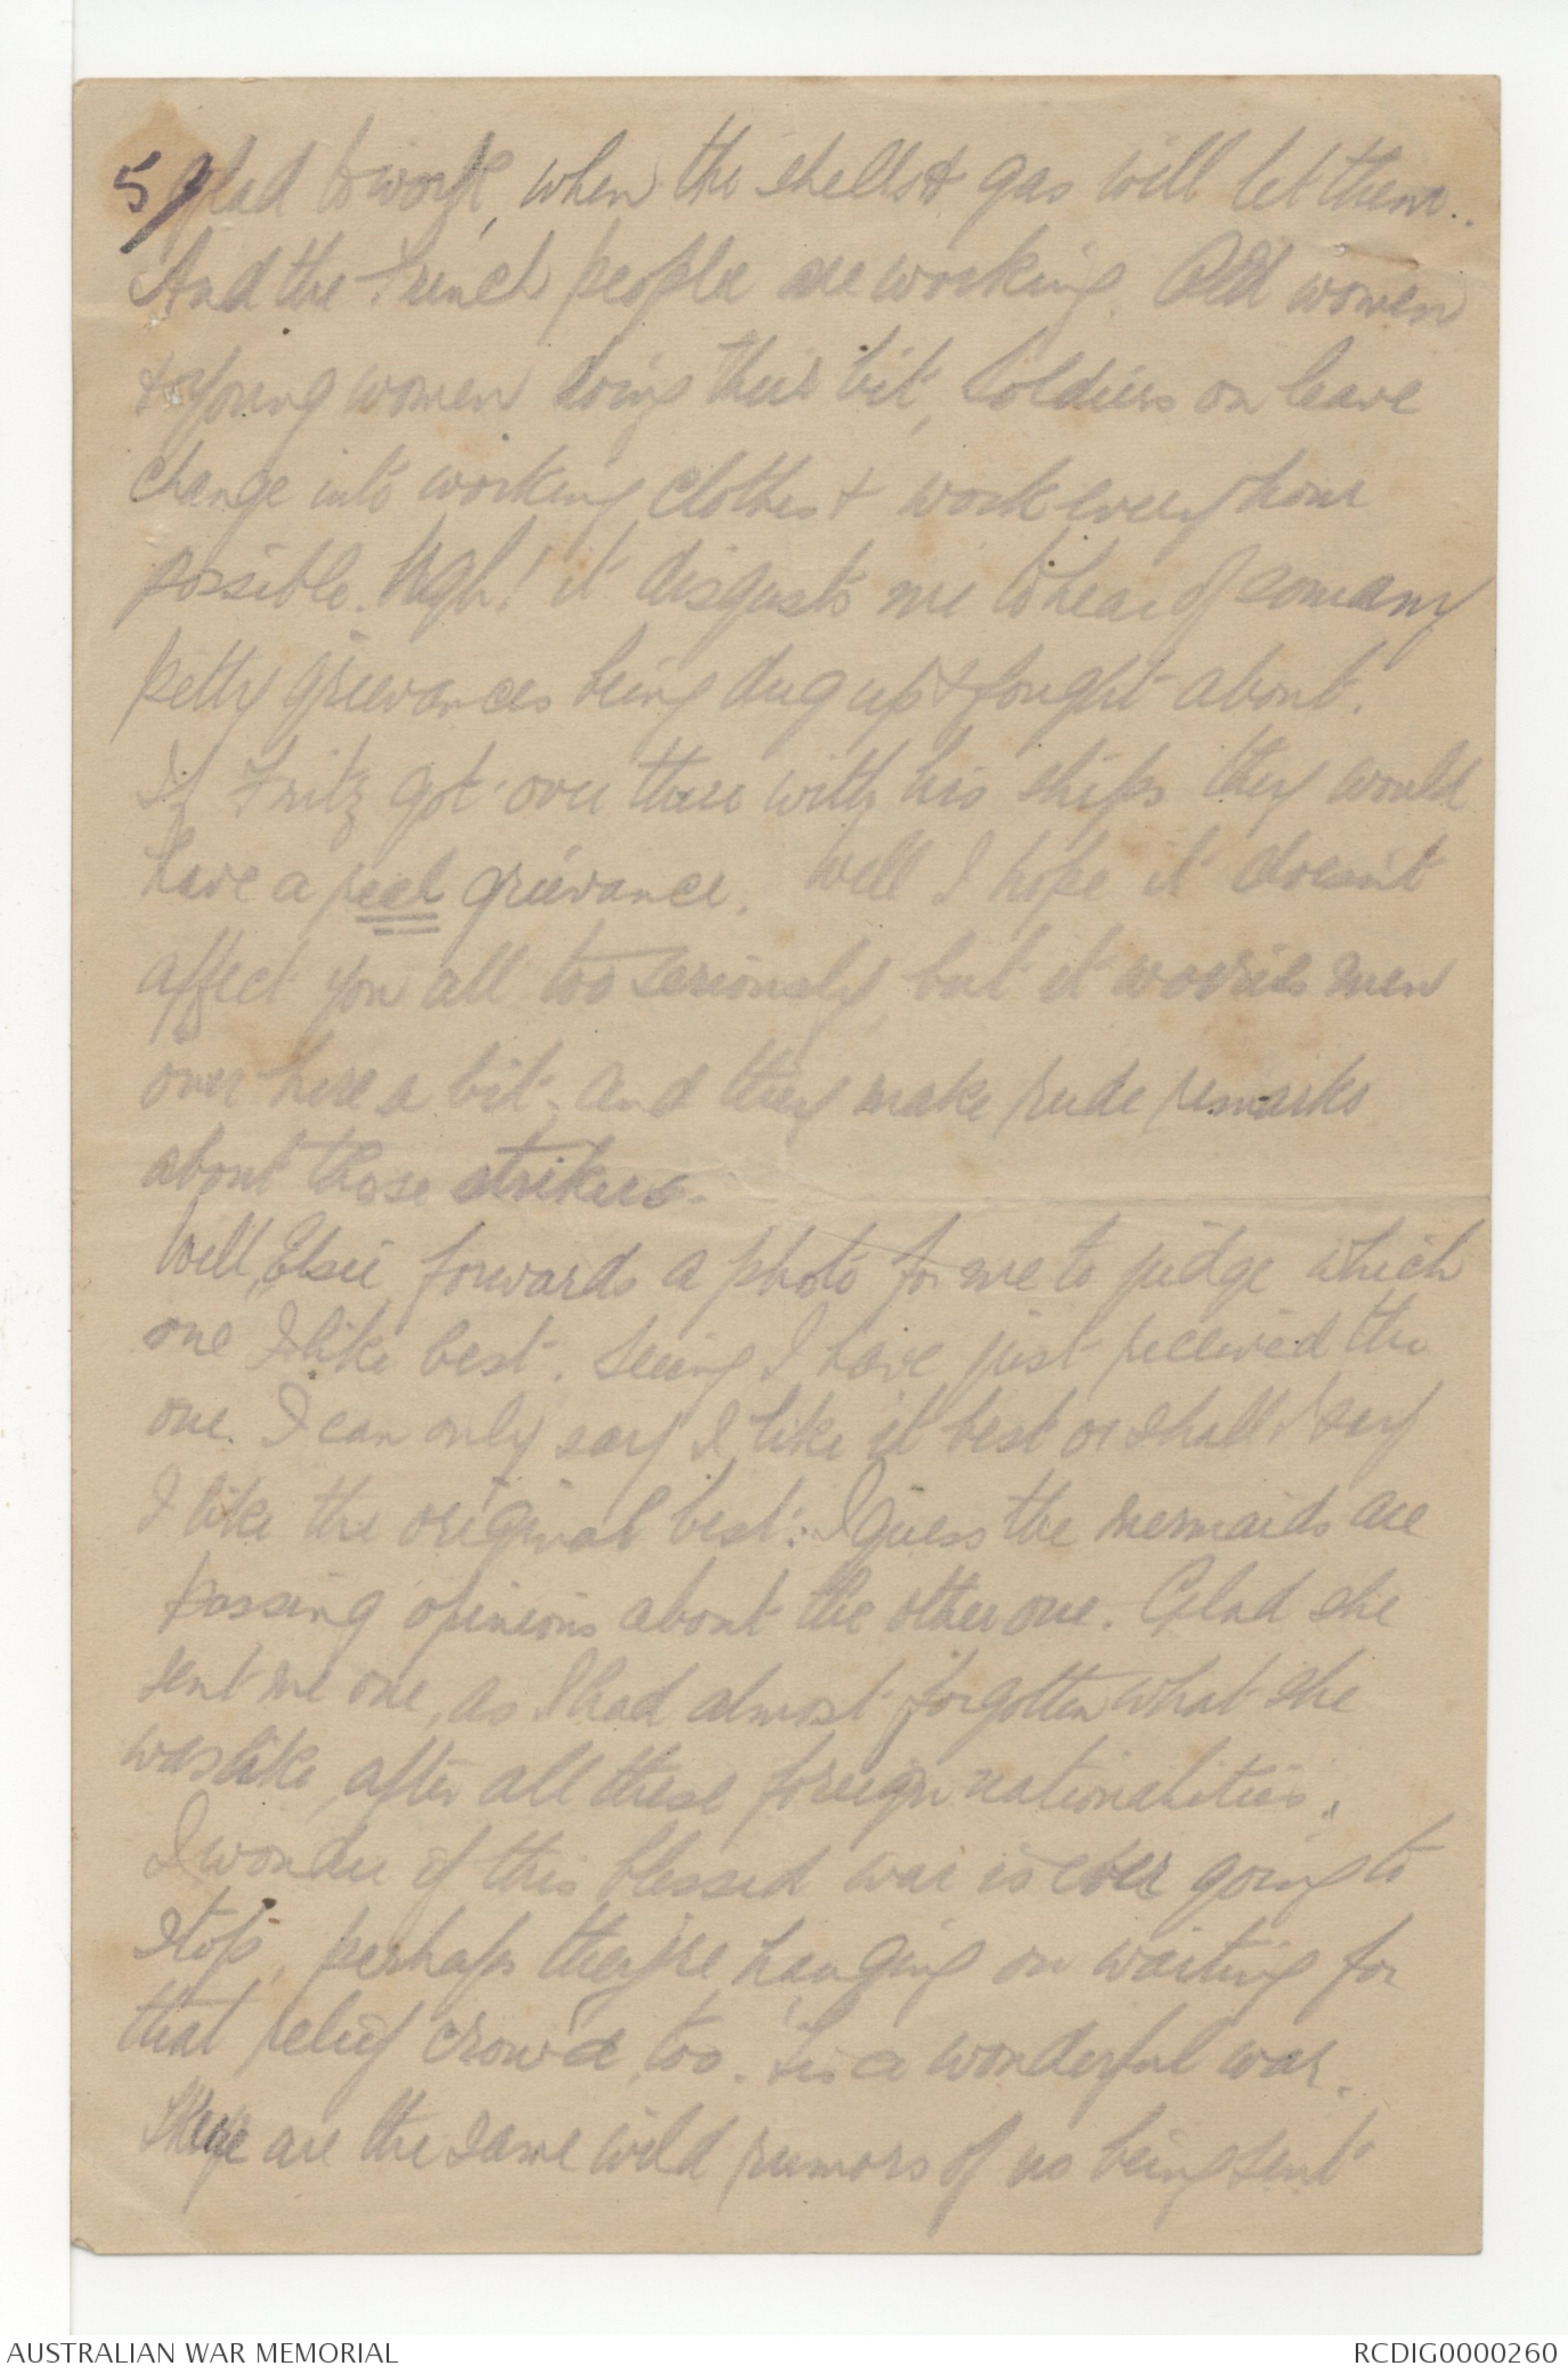 5/ glad to work, when the shells & gas will let them.
And the French people are working. Old women
& young women doing their bit, Soldiers on leave
change into working clothes & work every hour
possible. Ugh! it disgusts me to hear of so many
petty grievances being dug up & fought about.
If Fritz got over there with his ships they would
have a real grievance. Well I hope it doesn't
affect you all too seriously, but it worries men
over here a bit, and they make rude remarks
about those strikers.
Well, Elsie forwards a photo for me to judge which
one I like best. Seeing I have just received the
one I can only say I like it best or shall I say
I like the original best: I guess the mermaids are
passing opinions about the other one. Glad she
sent me one, as I had almost forgotten what she
was like, after all these foreign nationalities.
I wonder if this blessed war is ever going to
stop, perhaps they're hanging on waiting for
that relief crowd, too. 'Tis a wonderful war.
There are the same wild rumors of us being sent
AUSTRALIAN WAR MEMORIAL
RCDIG0000260